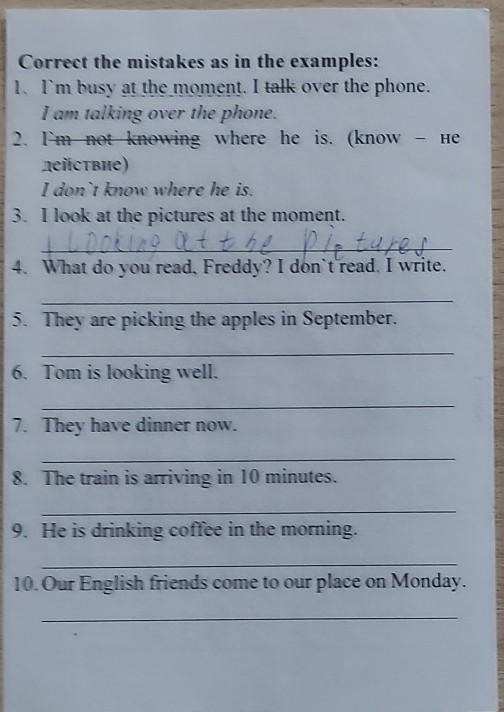 Correct the mistakes as in the examples:
1. I'm busy at the moment. I talk over the phone.
I am talking over the phone.
2. I'm not knowing where he is. (know – не
действие)
I don`t know where he is.
3. I look at the pictures at the moment.
I Looking at the pictures
4. What do you read, Freddy? I don`t read. I write.
5. They are picking the apples in September.
6. Tom is looking well.
7. They have dinner now.
8. The train is arriving in 10 minutes.
9. He is drinking coffee in the morning.
10. Our English friends come to our place on Monday.